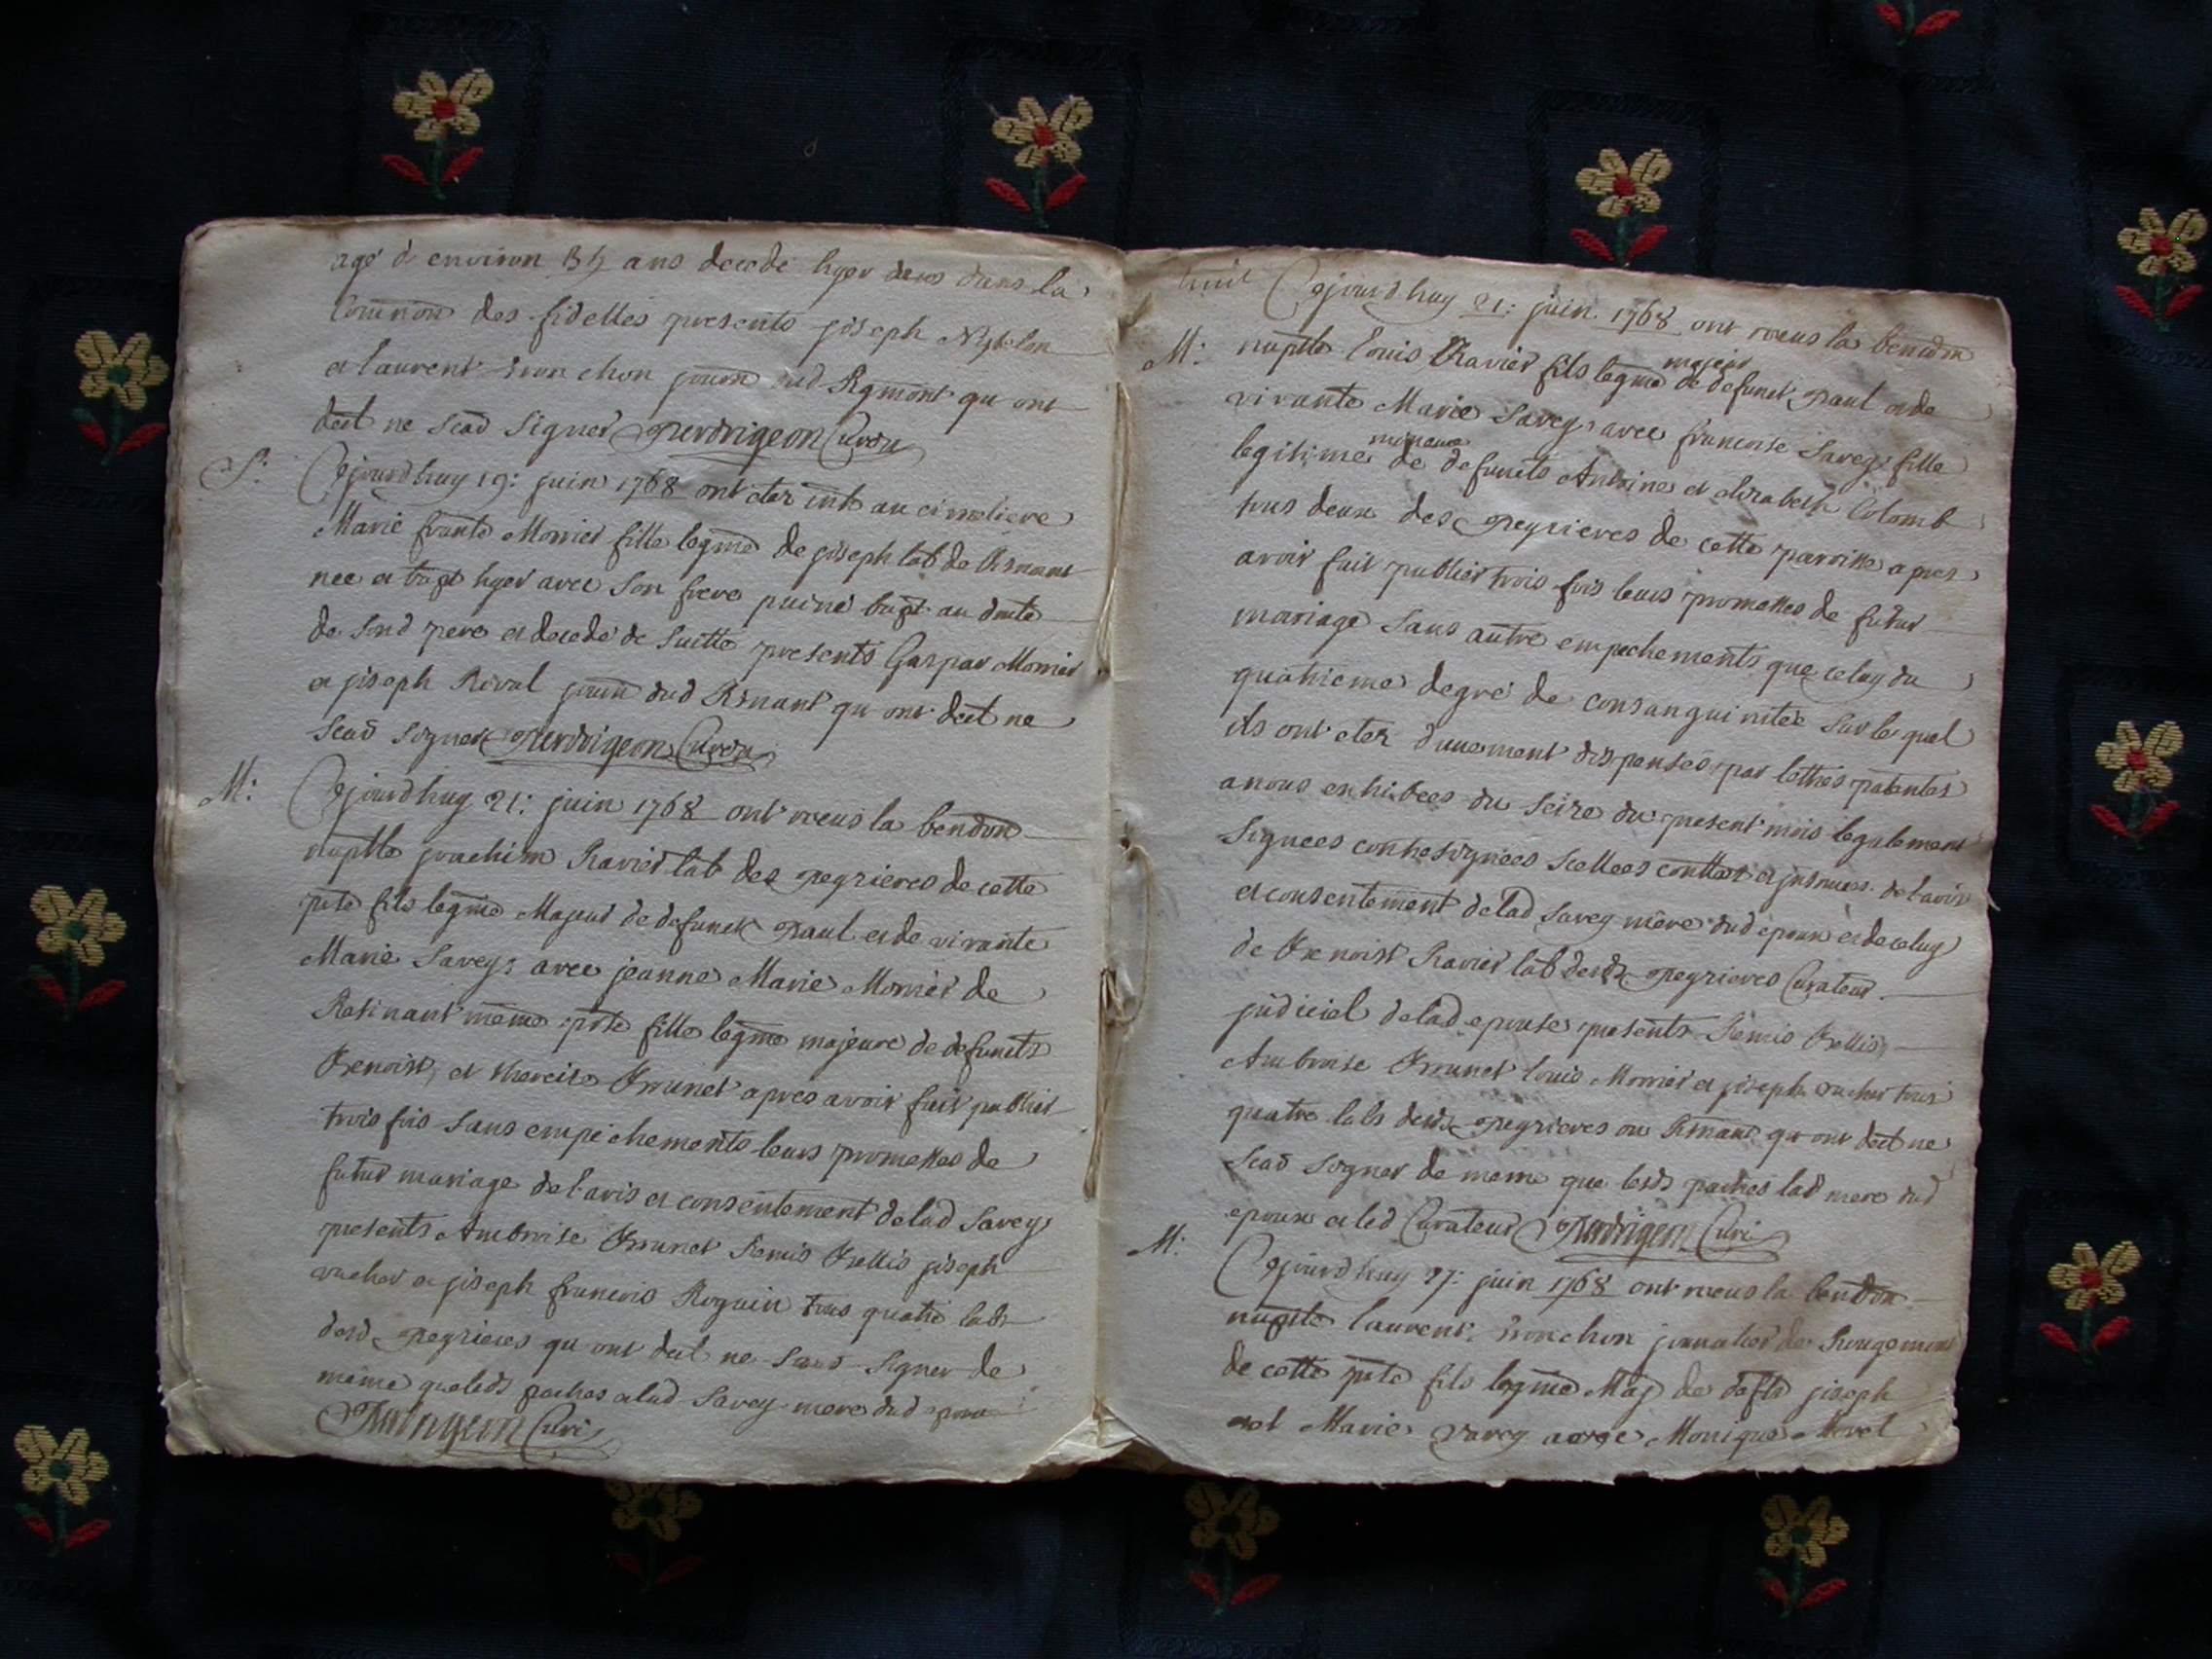 agé d environ 35 ans decedé hyer dans dans la
Comūnion des fidelles presents joseph
et laurent journ dud Rgmont qu ont
deƈt ne Scad Signer perdrigeon Curé
S: Cejourdhuy 19: juin 1768 ont eter inh au cimetiere
Marie Monier fille legme de joseph lab de
nee et bapt hyer avec Son frere puiné bapt au
de Sond pere et decedé de Suitte presents Gaspar Monier
et joseph Rival journ dud Rsnant qu ont deƈt ne
Scad Signer perdrigeon Curé
M: Cejourdhuy 21: juin 1768 ont receus la bendon
nuptlle joachim Ravier lab des peyrieres de cette
psse fils legme Majeur de defunct paul et de vivante
Marie Savey: avec jeanne Marie Monier de
Rasinant meme psse fille legme majeure de defuncts
Benoist, et thereise Brunet apres avoir fait publier
trois fois Sans empechements leurs promesses de
futur mariage de l avis et consentement delad Savey
presents Ambroise Brunet Remis Bellis joseph
vacher et joseph francois Roguin tous quatre labs
desd peyrieres qu ont deƈt ne Scad Signer de
même que lesds parties et lad Savey mere dud epoux
perdrigeon Curé
Cejourdhuy 21: juin 1768 ont receus la bendon
M: nuptlle Louis Ravier fils legme majeur de defunct paul et de
vivante Marie Savey, avec francoise Savey fille
legitime mineure de defuncts Antoine et elizabeth Colomb
tous deux des peyrieres de cette paroisse apres
avoir fait publier trois fois leurs promesses de futur
mariage Sans autre empechements que celuy du
quatrieme degré de consanguinitée Sur le quel
ils ont eter duuement dispensés par lettres patentes
a nous exhibees du Seize du present mois legalement
Signees contresignees Scellees et de l avis
et consentement delad Savey mère dud epoux et de celuy
de Benoist Ravier lab desds peyrieres Curateur
judiciel delad epouse presents Remis Bellis,
Ambroise Brunet louis Monier et joseph vacher tous
quatre labs desds peyrieres ou Rsnant qu ont deƈt ne
Scad Signer de meme que lesds parties lad mere dud
epoux et led Curateur perdrigeon Curé
M: Cejourdhuy 27: juin 1768 ont receus la bendon
nuptlle laurent journalier de Rougemont
de cette psse fils legme Maj de defts joseph
et Marie Varey avec Monique Morel